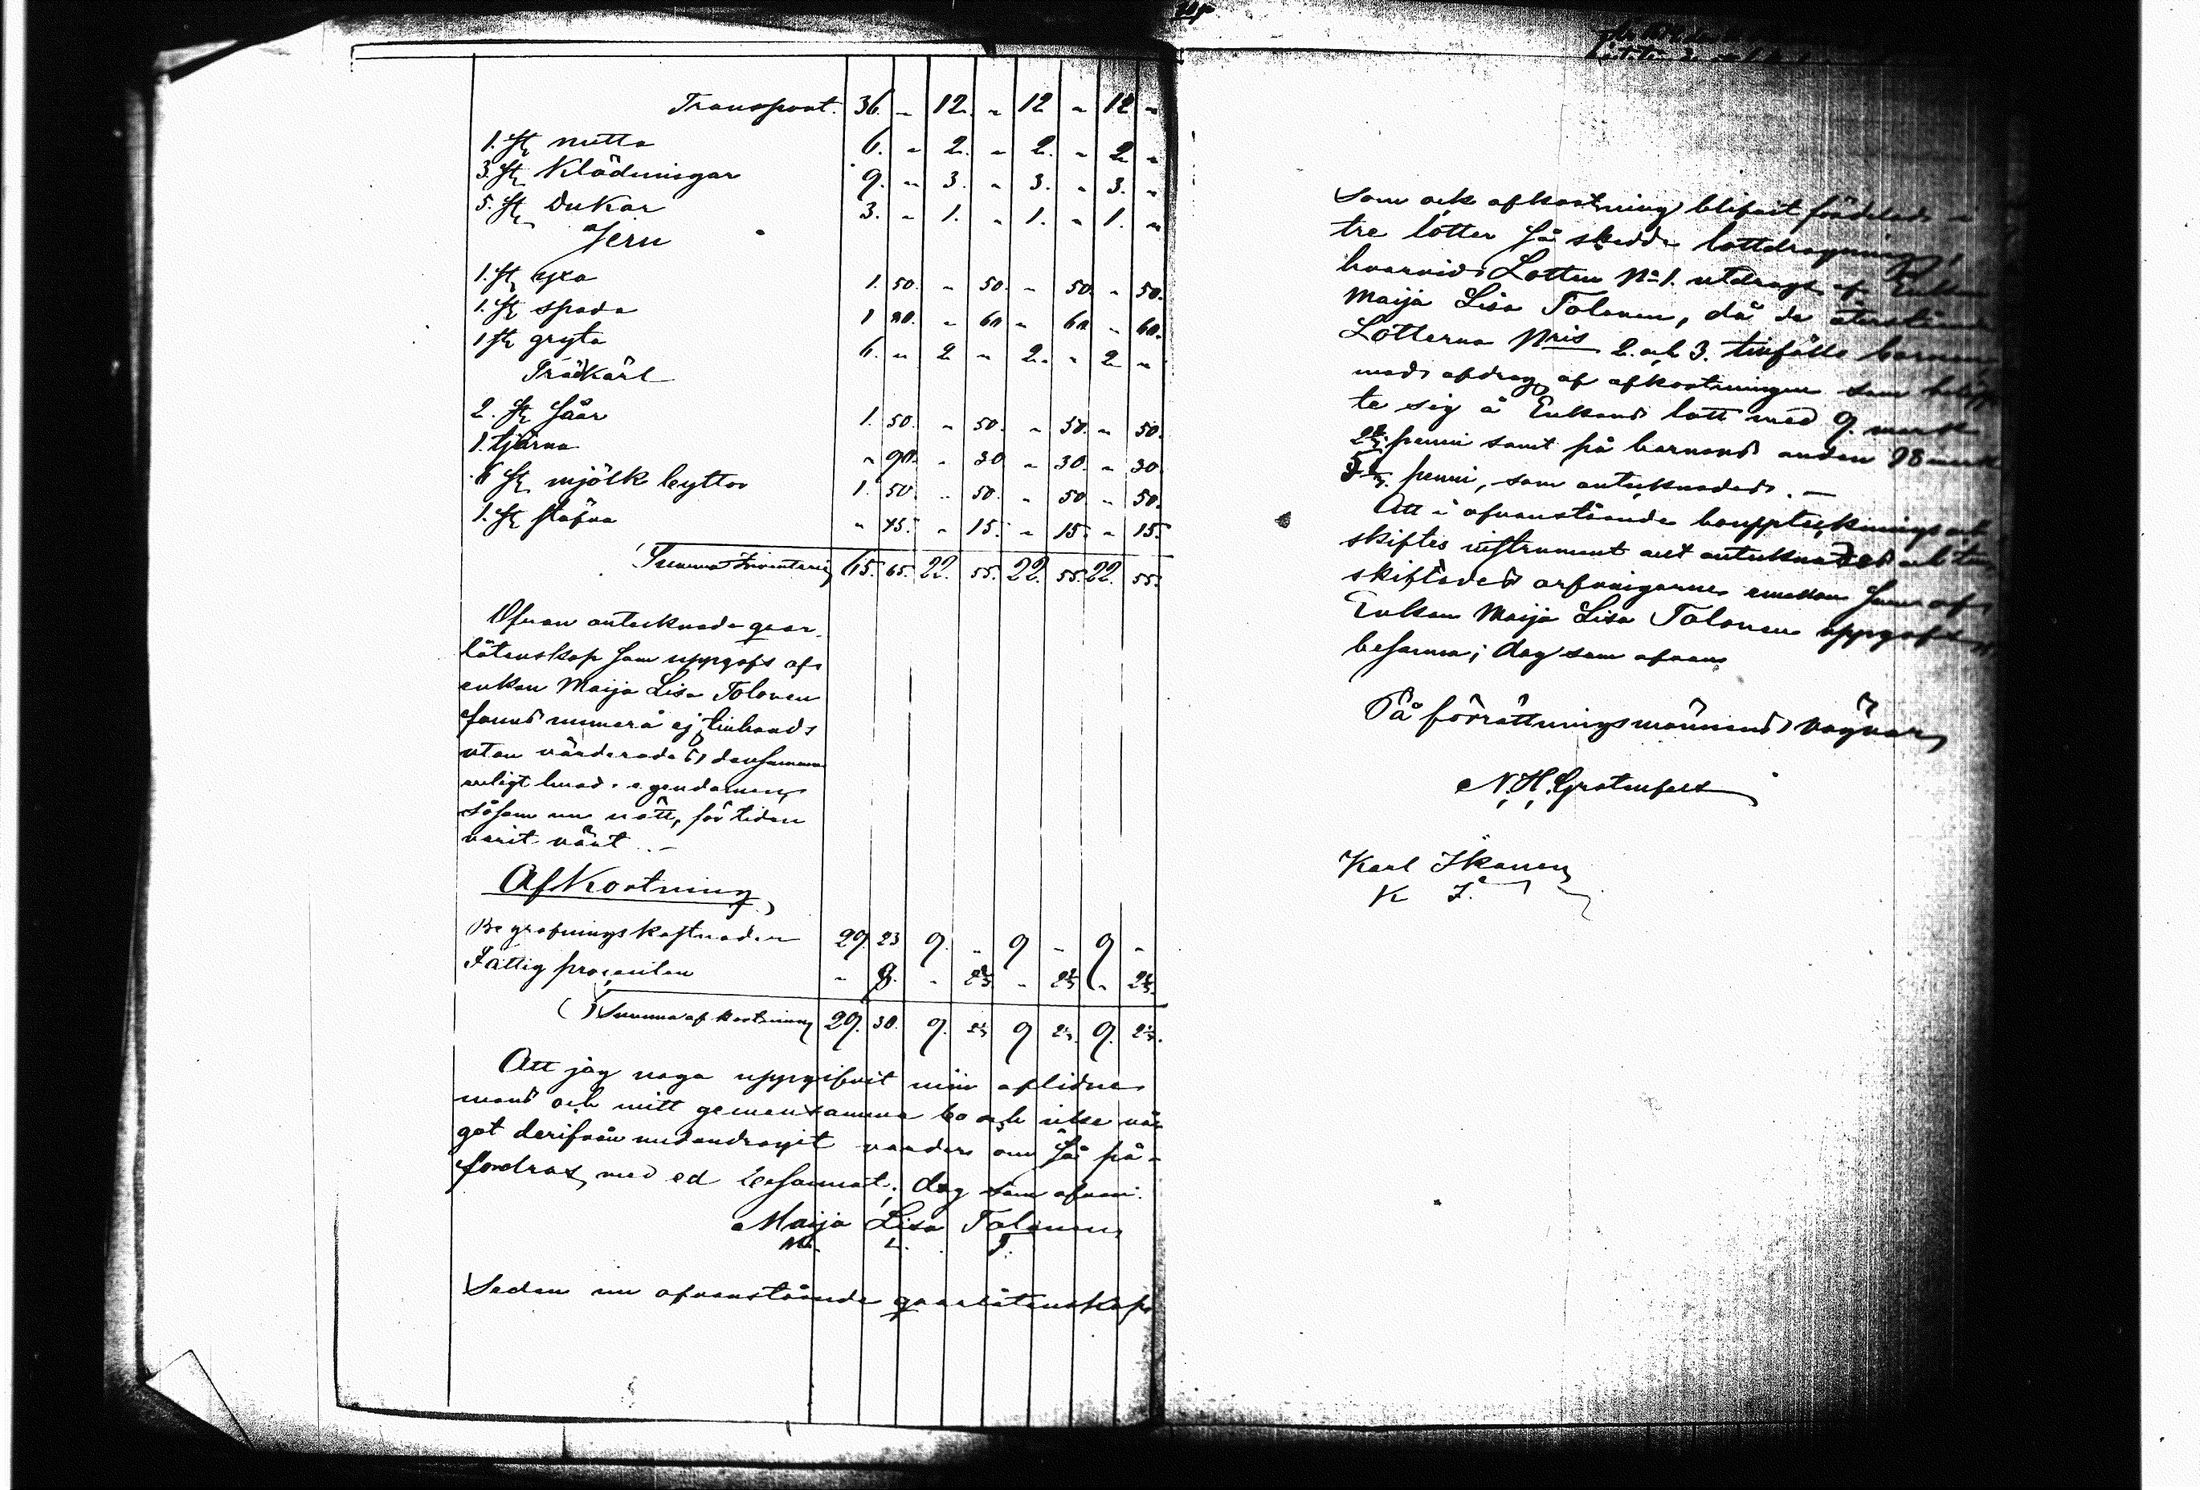 Transport. 36. „ 12. „ 12 „ 12 „
1. St. mutta 6. „ 2. „ 2. „ 2 „
3. St. Klädningar 9. „ 3. „ 3. „ 3. „
5. St. Dukar 3. „ 1. „ 1. „ 1. „
Jern
1. St. yxa 1. 50. „ 50. „ 50. „ 50.
1. St. spada 1 80. „ 60 „ 60. „ 60.
1 St. gryta 6. „ 2 „ 2. „ 2 „
Trädkärl
2. St. Såar 1. 50. „ 50. „ 50. „ 50.
1. tjärna „ 90. „ 30 „ 30. „ 30
6 St. mjölk byttor 1. 50. „ 50. „ 50 „ 50.
1. St. stäfva „ 45. „ 15. „ 15. „ 15.
Summa Inventarie 65. 65. 22. 55. 22. 55. 22. 55.
Ofvan antecknade qvar-
låtenskap som uppgafs af
enkan Maija Lisa Tolonen
fanns numera ej tillhands
utan värderades densamma
enligt hvad egendomen,
såsom un nött, för tiden
varit värt. —
Afkostning
Begrafningskostnaden 29. 23 9. „ 9 „ 9 „
Fattig procenten „ 8. „ 2⅔ „ 2⅔ „ 2⅔.
Summa afkostning 29. 30. 9. 2⅔ 9 2⅔. 9. 2⅔.
Att jag noga uppgifvit min aflidne
mans och mitt gemensamma bo och icke nå-
got derifrån undandragit varder om så på-
fordras, med ed besannat; dag som ofvan.
Maija Lisa Tolonen
M. L. T.
Sedan nu ofvanstående qvarlåtenskap
som ock afkostning blifvit fördelade i
tre lotter så skedde lottdragning,
hvarvid Lotten No 1. utdrogs af Enkan
Maija Lisa Tolonen, då de återstående
Lotterna Nris 2. och 3. tillföllo barnen,
med afdrag af afkostningen som belöp-
te sig å Enkans lott med 9. mark
2⅔. penni samt på barnens andel 18 mark
5⅓. penni, som antecknades. —
Att i ofvanstående bouppteckning och
skiftes instrument allt antecknades och
skiftades arfvingarne emellan som af
Enkan Maija Lisa Tolonen uppgafs
besanna; dag som ofvan
På förrättningsmännens vägnar
N. H. Grotenfelt
Karl Ikonen
K I.